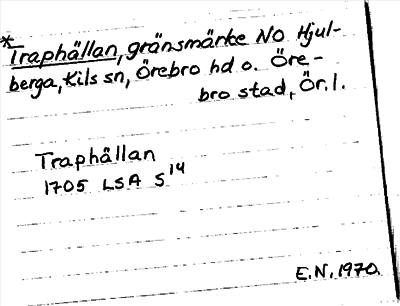 *Traphällan, gränsmärke NO Hjul-
berga, Kils sn, Örebro hd o. Öre-
bro stad, Ör. l.
Traphällan
1705 LSA S14
E.N. 1970.